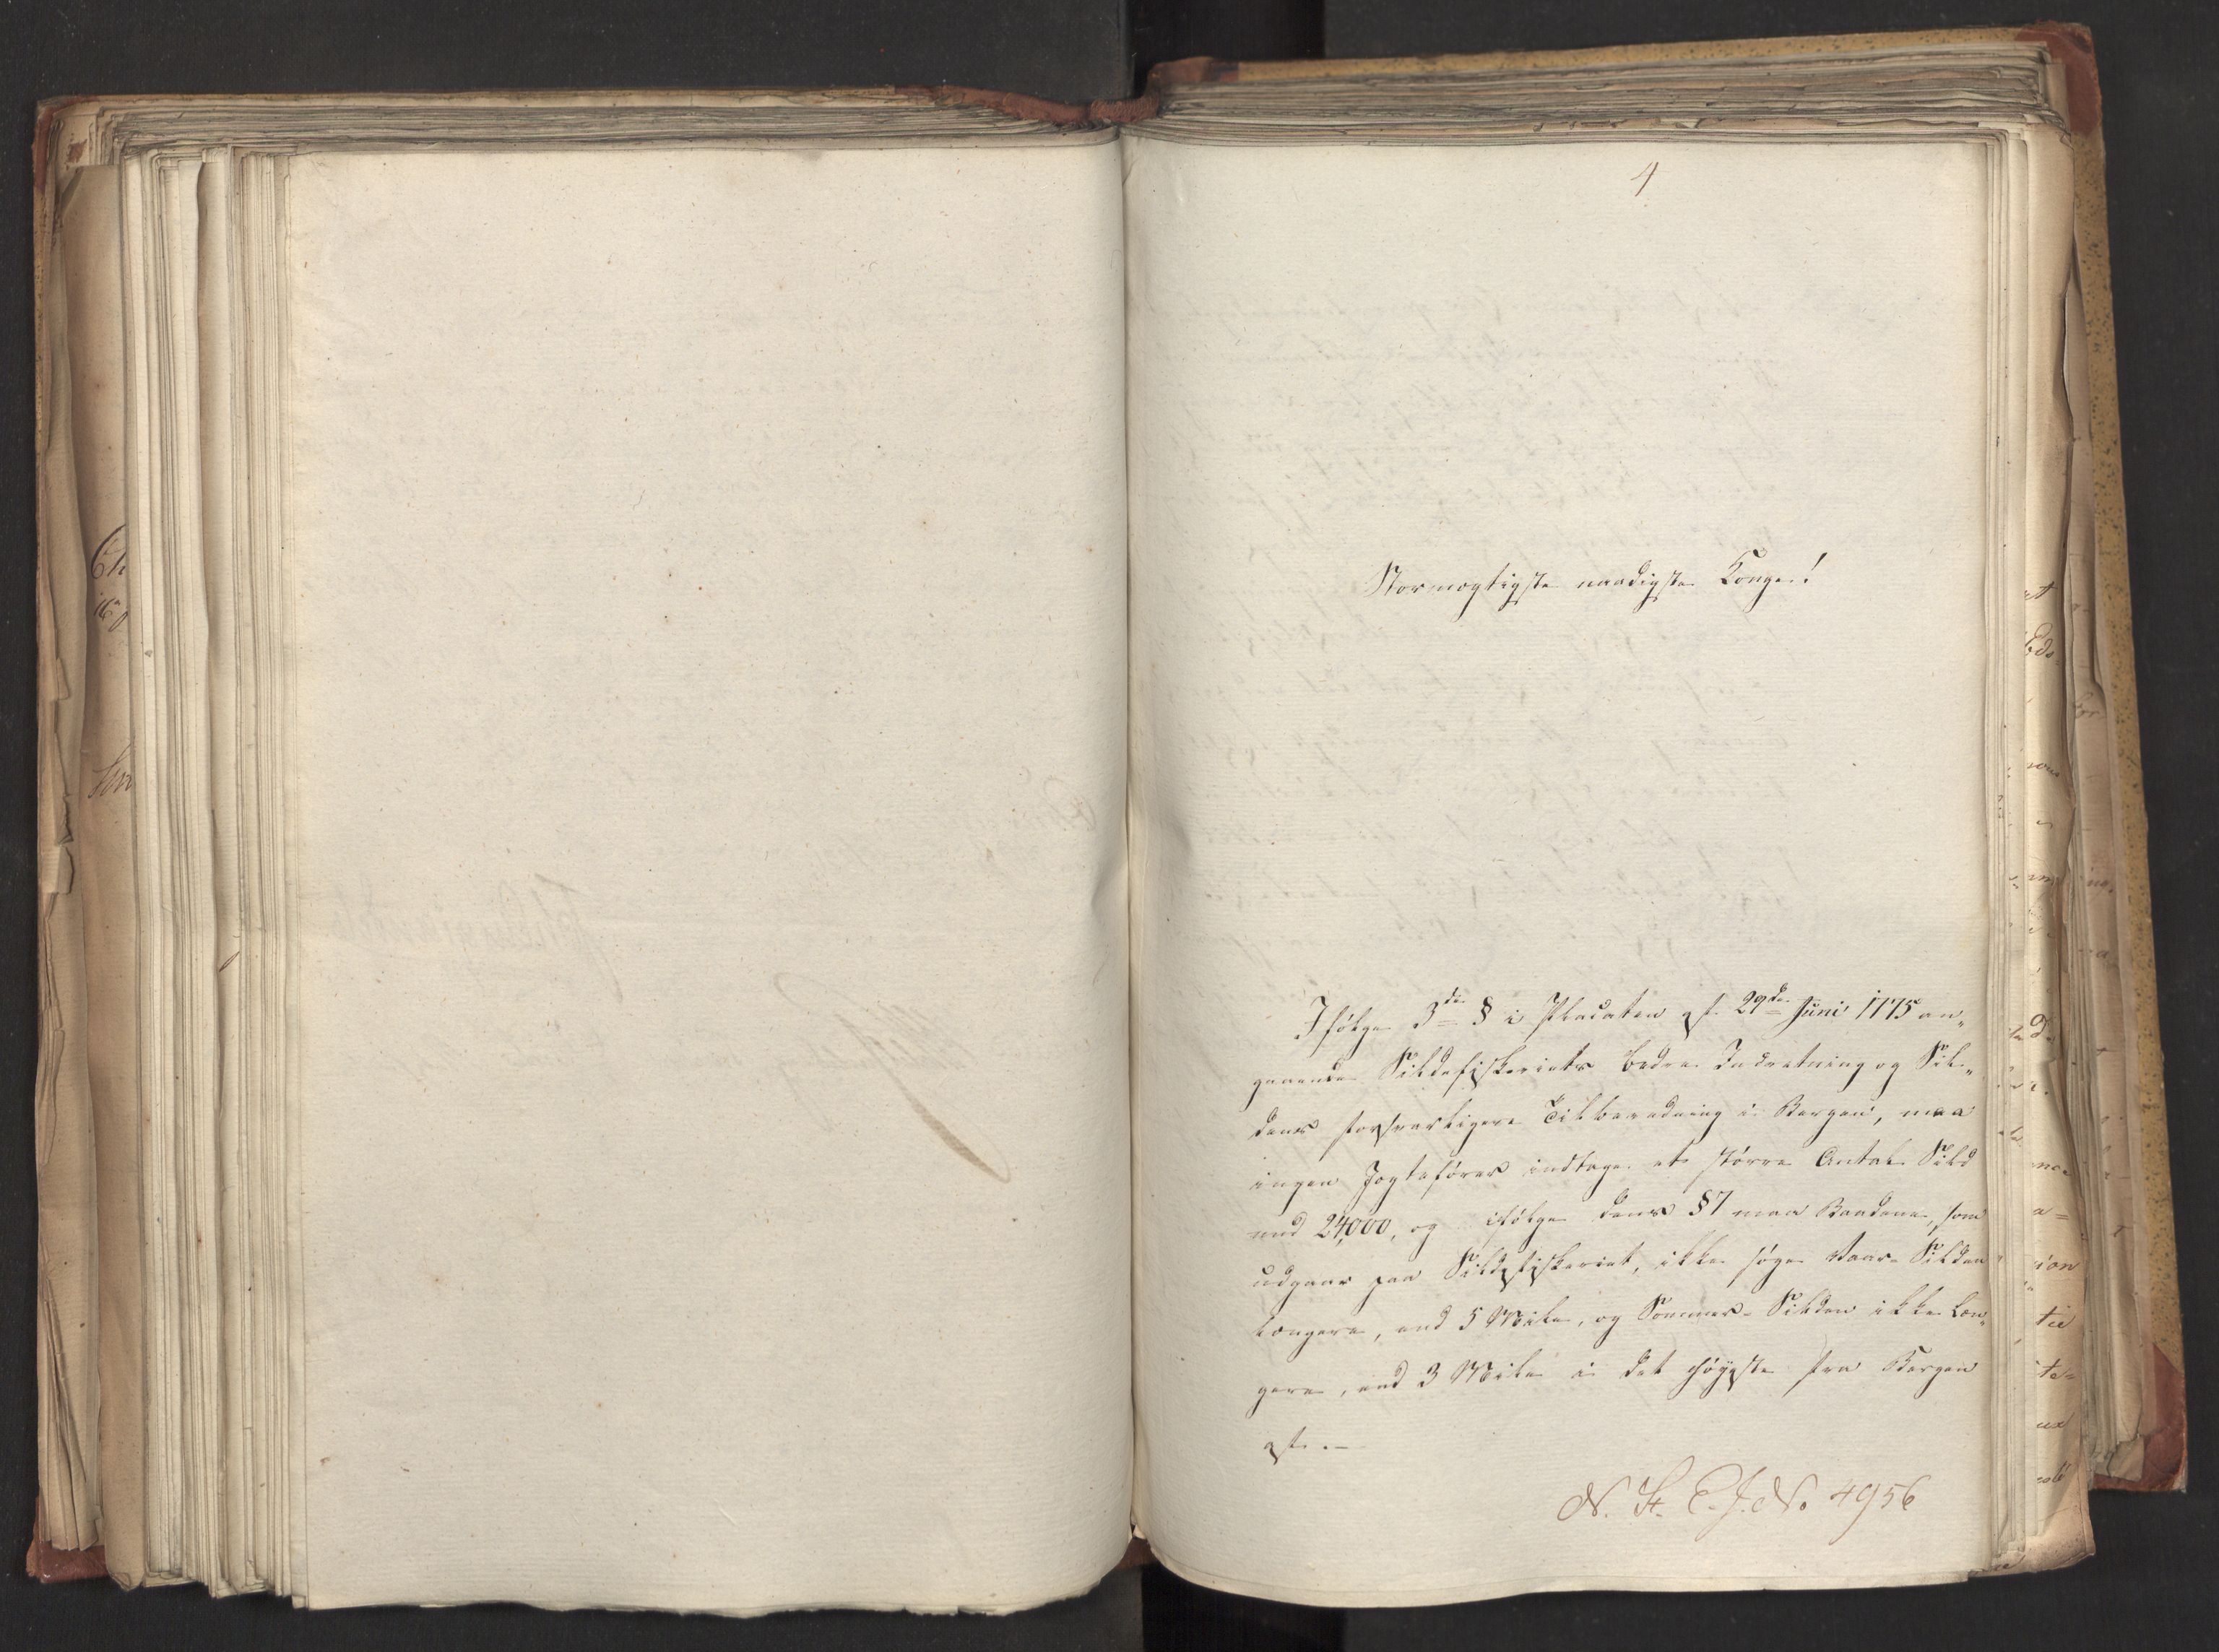 4
Stormægtigste naadigste Konge!
Ifølge 3die § i Placaten af 29de Juni 1775 an„
gaaende Sildefiskeriets bedre Indretning og Sil„
dens forsvarligere Tilberedning i Bergen, maa
ingen Jagtefører indtage et større Antal Sild
end 24,000, og ifølge dens § 7 maa Baadene, som
udgaar paa Sildefiskeriet, ikke søge Vaar-Silden
længere, end 5 Mile, og Sommer-Silden ikke læn„
gere, end 3 Mile i det høyeste fra Bergen
af.—
N. St. C. J. No 4956